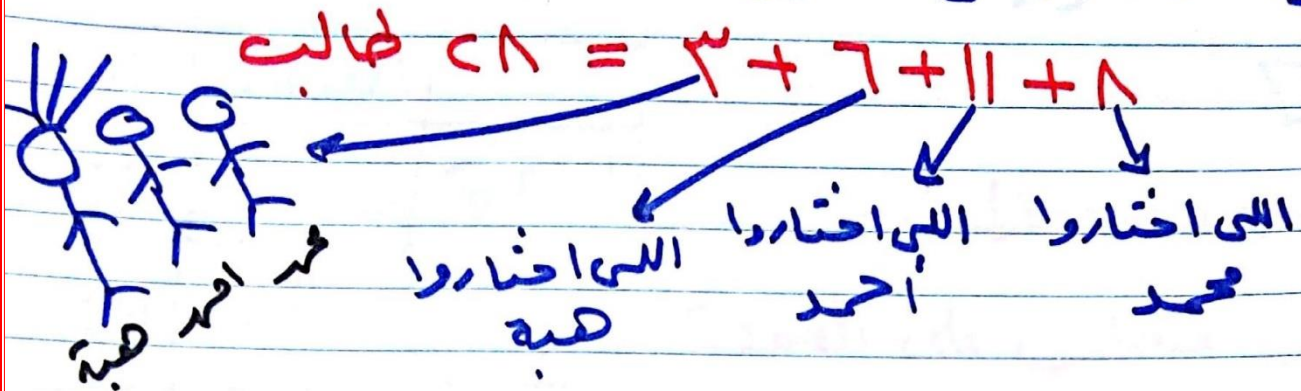 ٨ + ١١ + ٦ + ٣ = ٢٨ طالب
اللى اختاروا محمد
اللى اختاروا أحمد
اللى اختاروا هبة
محمد احمد هبة